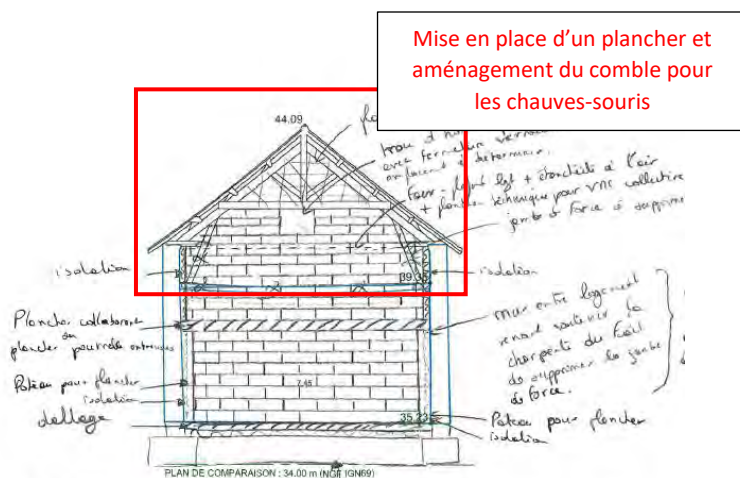 Mise en place d’un plancher et
aménagement du comble pour
les chauves-souris
44.09
trou d'
avec fermeture
emplacement à déterminer.
Faux-plafond + étanchéité à l'air
+ pour VMC collective
jambe de force à supprimer
isolation
39.35
isolation
Plancher collaborant
ou
plancher poutrelle
mur entre logement
venant soutenir la
charpente du fait
de supprimer la jambe
de force.
Poteau pour plancher
isolation
7.45
dallage
35.23
Poteau pour plancher
isolation
PLAN DE COMPARAISON : 34.00 m (NGF IGN69)